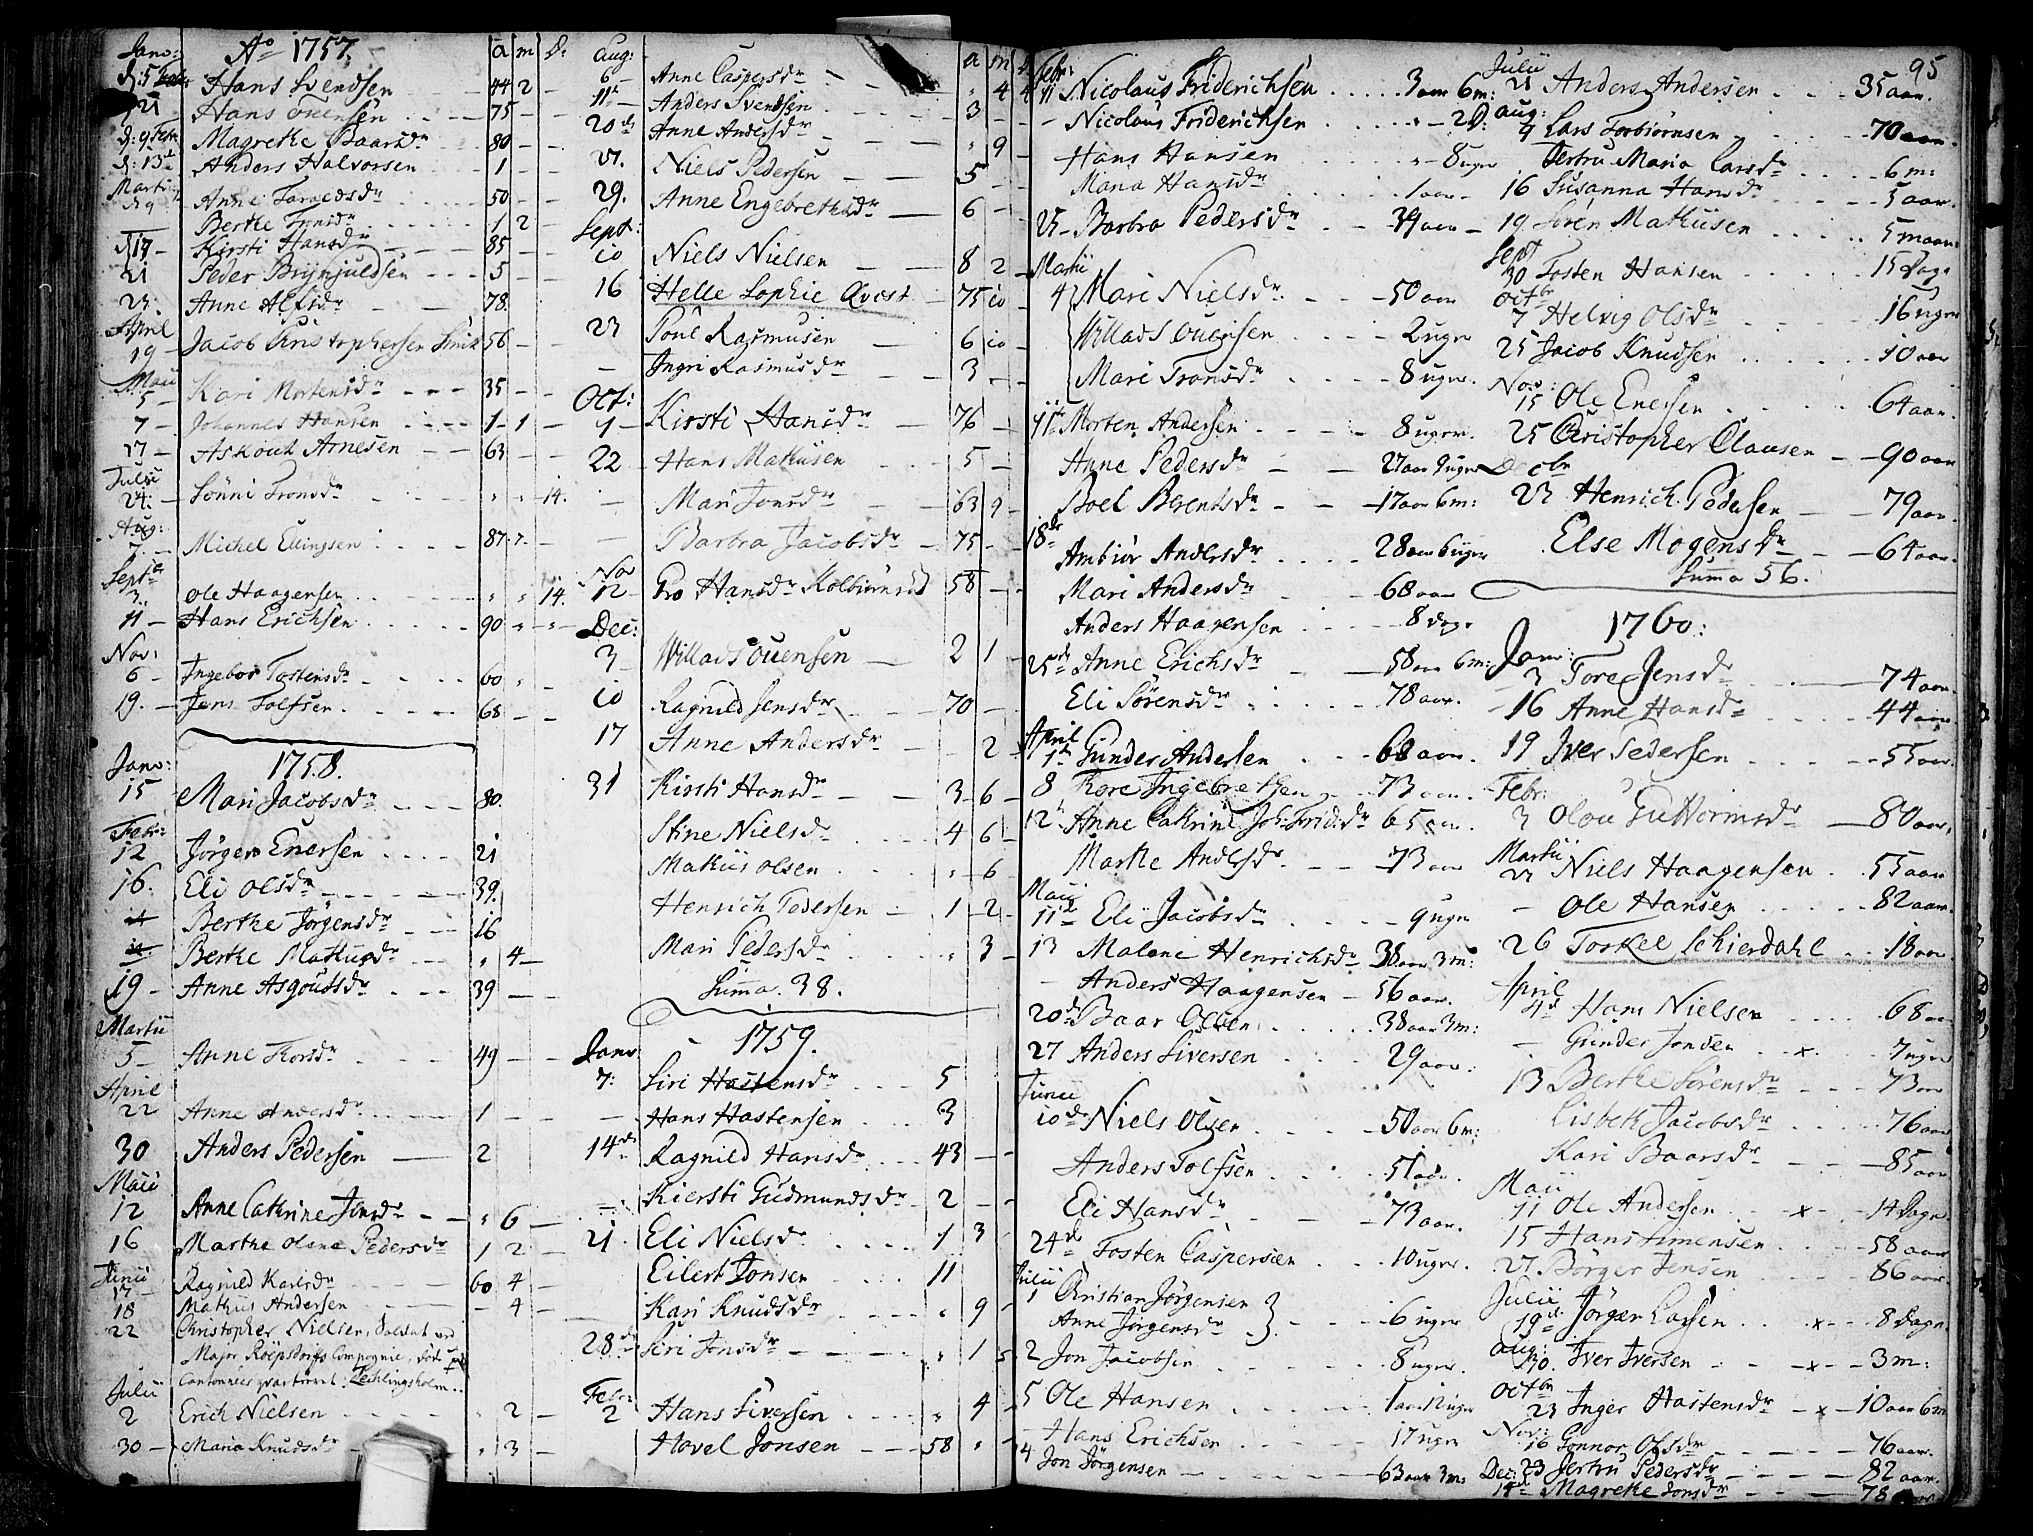 Janv: Ao 1757. a m d:
d: 5 Hans Svendsen 44 2 -
21 Hans Ouensen 75 - -
d: 9 Febr: Magrethe Baarsdr 80 - -
d: 13 Anders Halvorsen 1 - -
Martii
d 9 Anne Taraldsdr 50 - -
Berthe Tronsdr 1 2 -
d 17 - Kirsti Hansdr 85 - -
21 Peder Brynjuldsen 5 -
23. Anne Alfsdr 78.
April
19 - Jacob Christophersen 56 - -
Maii
5 - Kari Mortensdr 35 - -
7 - Johannes Hansen 1 - 1 -
17 - Askout Arnesen 63 - -
Julii
24: - Sönni Tronsdr " " 14.
Aug:
7. - Michel Ellingsen 87. 7. -
Septb
3. Ole Haagensen " " 14.
11 - Hans Erichsen 90 " " -
Nov:
6 - Ingebor Tostensdr 60 " -
19. - Jens Tolfsen 68 - -
1758.
Janv:
15 Mari Jacobsdr 80.
Febr:
12 Jörgen Enersen 21
16. Eli Olsdr 39.
Berthe Jörgensdr 16
Berthe Mathusdr " 4 -
19 - Anne Asgoutsdr 39 - -
Martii
5 - Anne Thorsdr 49 - -
April
22 Anne Andersdr 1 - -
30 Anders Pedersen 2
Maii
12 Anne Cathrine Jensdr " 6 -
16 Marthe Olene Pedersdr 1 2 -
Junii
17 - Ragnild Karlsdr 60 4 -
18 Mathus Andersen - 4 -
22 Christopher Nielsen, Soldat ved
Major Roepsdorfs Compagnie, död
Cantonnies qvarteret
Julii
2 Erich Nielsen " 2 -
30 - Maria Knudsdr " 3 -
Aug: a m d
6 - Anne Caspersdr - " 4 4
11 - Anders Svendsen 3 - -
20 d Anne Andersdr " 9 -
21. Niels Pedersen 5 - -
29. Anne Engebrethsdr 6 - -
Sept:
10 Niels Nielsen 8 2 -
16 Helle Sophie Qvist 75 10 -
23 Poul Rasmusen 6 10 -
- Ingri Rasmusdr 3 - -
Oct:
1 - Kirsti Hansdr 76 -
22 Hans Mathisen 5 -
- Mari Jonsdr 63 9 -
- Barbra Jacobsdr 75 - -
Nov
12 Gro Hansdr Kolbiörnsrud 58 - -
Dec:
3 - Willads Ouensen 2 1 -
10 Ragnild Jensdr 70 -
17 Anne Andersdr 2 -
31 Kirsti Hansdr 3 - 6 -
Stine Nielsdr 4 6 -
Mathis Olsen " 6
Henrich Pedersen 1 - 2 -
Mari Pedersdr " 3 -
Summa. 38.
1759.
Janv
7: Siri Hastensdr 5
Hans Hastensen 3
14 d Ragnild Hansdr 43 - -
Kiersti Gudmundsdr 2 - -
21. Eli Nielsdr 1 3 -
Eilert Jonsen 11
Kari Knudsdr " 9 -
28 d Siri Jonsdr " 1 5
Febr:
2 Hans Siversen " 4
Hovel Jonsen 58 " -
Febr:
11 Nicolaus Friderichsen 3 aar 6 m:
- Nicolaus Friderichsen " 2 d:
Hans Hansen " 8 uger
Maria Hansdr 1 aar -
25 - Barbra Pedersdr 39 aar -
Martii
4 Mari Nielsdr 50 aar
Willads Ouensen 2 uger
Mari Tronsdr 8 uger.
11 Morten Andersen 8 uger.
Anne Pedersdr 27 aar 9 uger
Boel Berentsdr 17 aar 6 m:
18 d
Ambiör Andersdr 28 aar 6 uger
Mari Andersdr 68 aar
Anders Haagensen 8 dage
25 d Anne Erichsdr 58 aar 6 m:
Eli Sörensdr 78 aar.
April
1 d Gunder Andersen 68 aar.
8 Tore Ingebrethsen 73 aar.
12 Anne Cathrine Joh: Fridr:dr 65 aar.
Marthe Andersdr 73 aar
Maii
11 d Eli Jacobsdr 9 uger
13 Malene Henrichsdr 38 aar 3 m:
- Anders Haagensen - 56 aar.
20 d Baar Olsen 38 aar 3 m:
27 Anders Siversen 29 aar.
Junii
10 d Niels Olsen 50 aar 6 m:
Anders Tolfsen 51 aar.
Eli Hansdr 73 aar.
24 d Tosten Caspersen 10 uger.
Julii
1 Christian Jörgensen }
Anne Jörgensdr } 6 uger
2 Jon Jacobsen 8 uger.
5 Ole Hansen 1 aar 12 uger
- Hans Erichsen 17 uger
4 Jon Jörgensen 63 aar 3 m:
95
Julii
21 Anders Andersen 35 aar.
Aug:
4 Lars Torbiörnsen 70 aar.
Jertru Maria Larsdr 6 m:
16 Susanna Hansdr 5 aar
19. Sören Mathisen 5 maan:
Sept
30 Tosten Hansen 15 dage
Octbr
7 Helvig Olsdr 16 uger
25 Jacob Knudsen 10 aar
Nov:
15 Ole Enersen 64 aar.
25 Christopher Clausen - 90 aar
Decbr
23 Henrich Pedersen 79 aar.
Else Mogensdr 64 aar.
Summa 56.
1760:
Janv:
3 Tore Jensdr 74 aar.
16 Anne Hansdr 44 aar
19 Iver Pedersen 55 aar
Febr:
3 Olou Guttormsdr 80 aar.
Martii
23 Niels Haagensen 55 aar
- Ole Hansen 82 aar.
26 Torkel Schierdahl 18 aar.
April
4 d Hans Nielsen 68 aar
- Gunder Jonsen x 7 uger
13 Berthe Sörensdr 73 aar
Lisbeth Jacobsdr 76 aar
Kari Baarsdr 85 aar
Maii
11 Ole Andersen x 14 dage
15 Hans Simensen 58 aar
27 Börger Jensen 86 aar
Julii
19 d Jörgen Larsen x 8 dage
Aug:
30. Iver Iversen x 3 m:
Octbr
23 Inger Hastensdr x 10 aar 6 m
Nov:
16 Gonnor Olsdr 76 aar.
23 Jertru Pedersdr 82 aar.
Dec: 14 Magrethe Jonsdr 78 aar